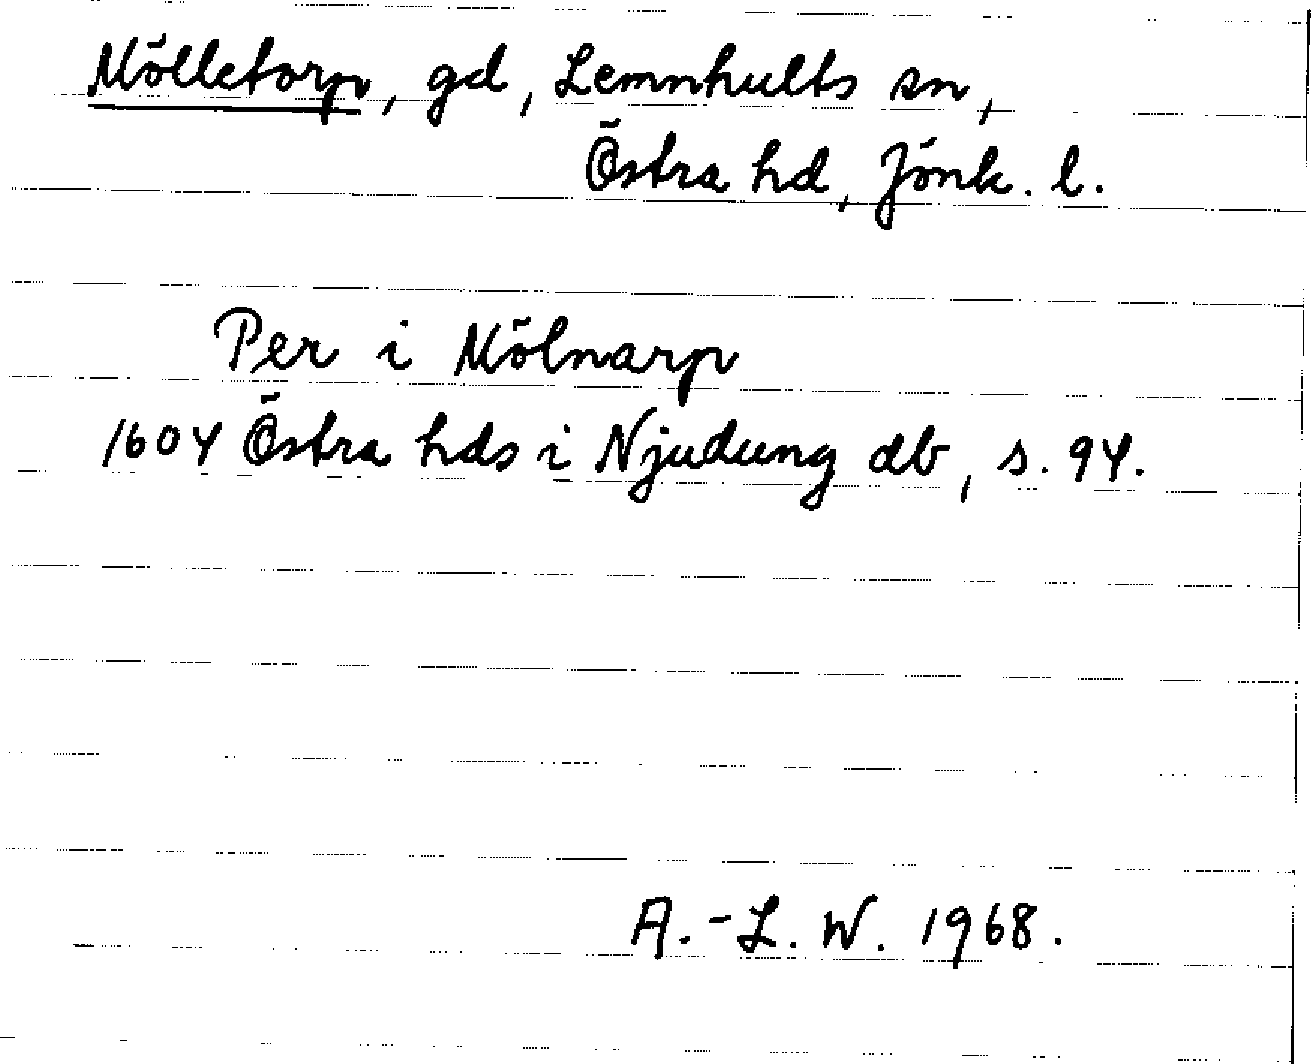 Mölletorp, gd, Lemnhults sn,
Östra hd, Jönk. l.
Per i Mölnarp
1604 Östra hds i Njudung db, s. 94.
A.-L. W. 1968.